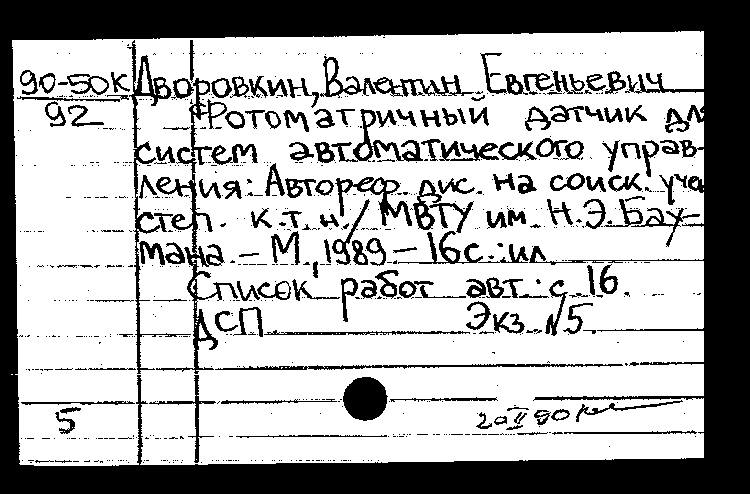 90-50К Дворовкин, Валентин Евгеньевич
92 Фотоматричный датчик для
систем автоматического управ-
ления: Автореф. дис. на соиск. уче
степ. к.т.н. / МВТУ им. Н.Э.Бау-
мана. - М., 1989. - 16с.: ил.
Список работ авт.: с. 16.
ДСП Экз. №5.
5 20 II 90